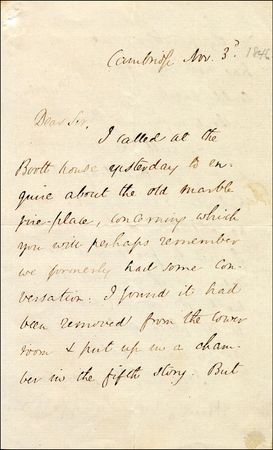 Cambridge Nov. 3d. 1846
Dear Sir,
I called at the
Bortt house yesterday to en-
quire about the old marble
fire-place, concerning which
you will perhaps remember
we formerly had some con-
versation. I found it had
been removed from the lower
room & put up in a cham-
ber in the fifth story. But